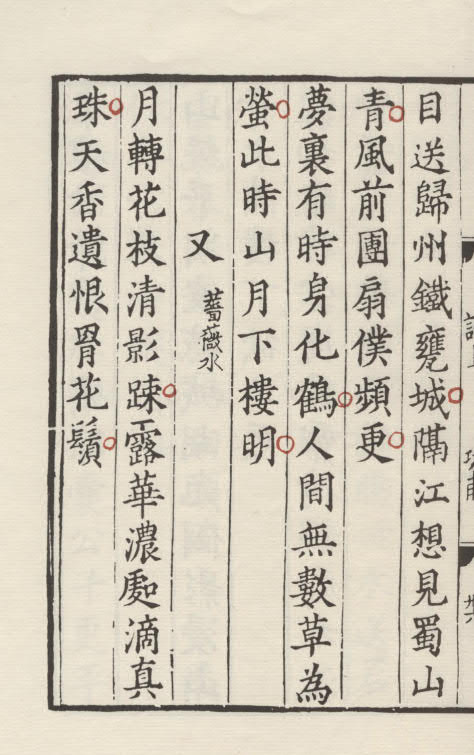 目送歸州鐵甕城隔江想見蜀山
青風前團扇僕頻更
夢裏有時身化鶴人間無數草為
螢此時山月下樓明
又薔薇水
月轉花枝清影踈露華濃處滴真
珠天香遺恨罥花鬚